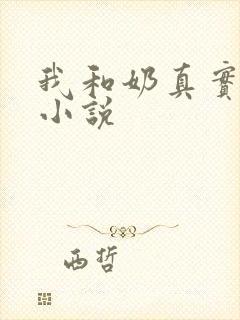 我和奶真實
小說
西哲